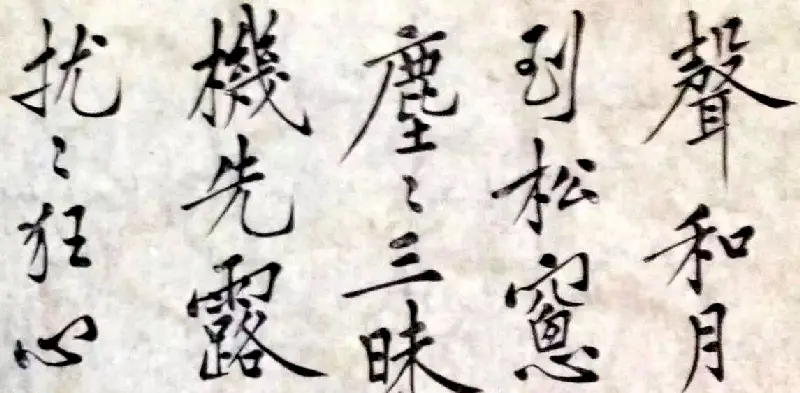 聲和月
到松窻
塵〻三昧
機先露
扰〻狂心